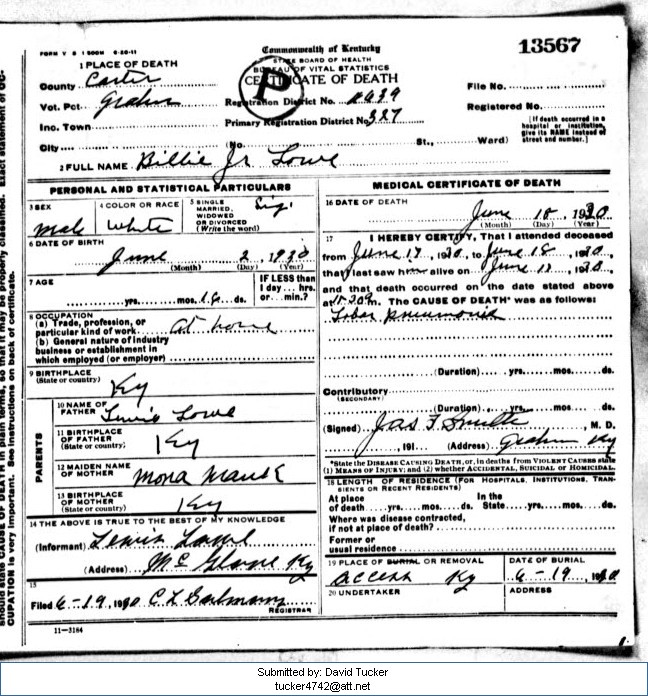 FORM V S 1 500M 6-20-11
Commonwealth of Kentucky
STATE BOARD OF HEALTH
BUREAU OF VITAL STATISTICS
CERTIFICATE OF DEATH
13567
P
1 PLACE OF DEATH
County Carter
Vot. Pct. Grahn
Inc. Town
City
(No. St., Ward)
Registration District No.
Primary Registration District No. 327
File No.
Registered No.
[If death occurred in a
hospital or institution,
give its NAME instead of
street and number.]
2 FULL NAME Billie Jr Lowe
PERSONAL AND STATISTICAL PARTICULARS
3 SEX
Male
4 COLOR OR RACE
White
5 SINGLE
MARRIED,
WIDOWED
OR DIVORCED
(Write the word)
Sing.
6 DATE OF BIRTH
June 2, 1930
(Month) (Day) (Year)
7 AGE
yrs. mos. ds.
IF LESS than
1 day... hrs.
or... min.?
8 OCCUPATION
(a) Trade, profession, or
particular kind of work At home
(b) General nature of industry
business or establishment in
which employed (or employer)
9 BIRTHPLACE
(State or country)
Ky
PARENTS
10 NAME OF
FATHER Lewis Lowe
11 BIRTHPLACE
OF FATHER
(State or country)
Ky
12 MAIDEN NAME
OF MOTHER
Mona
13 BIRTHPLACE
OF MOTHER
(State or country)
Ky
14 THE ABOVE IS TRUE TO THE BEST OF MY KNOWLEDGE
(Informant) Lewis Lowe
(Address) McGlone Ky
15
Filed 6-19, 1930 C L
REGISTRAR
11-3184
MEDICAL CERTIFICATE OF DEATH
16 DATE OF DEATH
June 18, 1930
(Month) (Day) (Year)
17 I HEREBY CERTIFY, That I attended deceased
from June 17, 1930, to June 18, 1930,
that I last saw him alive on June, 1930,
and that death occurred on the date stated above
at m. The CAUSE OF DEATH* was as follows:
Lobar pneumonia
(Duration) yrs. mos. ds.
Contributory
(SECONDARY)
(Duration) yrs. mos. ds.
(Signed) Jas F Smith, M. D.
, 191 (Address) Grahn Ky
*State the DISEASE CAUSING DEATH, or, in deaths from VIOLENT CAUSES state
(1) MEANS OF INJURY; and (2) whether ACCIDENTAL, SUICIDAL or HOMICIDAL.
18 LENGTH OF RESIDENCE (FOR HOSPITALS, INSTITUTIONS, TRAN-
SIENTS OR RECENT RESIDENTS)
At place In the
of death yrs. mos. ds. State yrs. mos. ds.
Where was disease contracted,
if not at place of death?
Former or
usual residence
19 PLACE OF BURIAL OR REMOVAL
Access Ky
DATE OF BURIAL
6-19, 1930
20 UNDERTAKER
ADDRESS
Submitted by: David Tucker
tucker4742@att.net